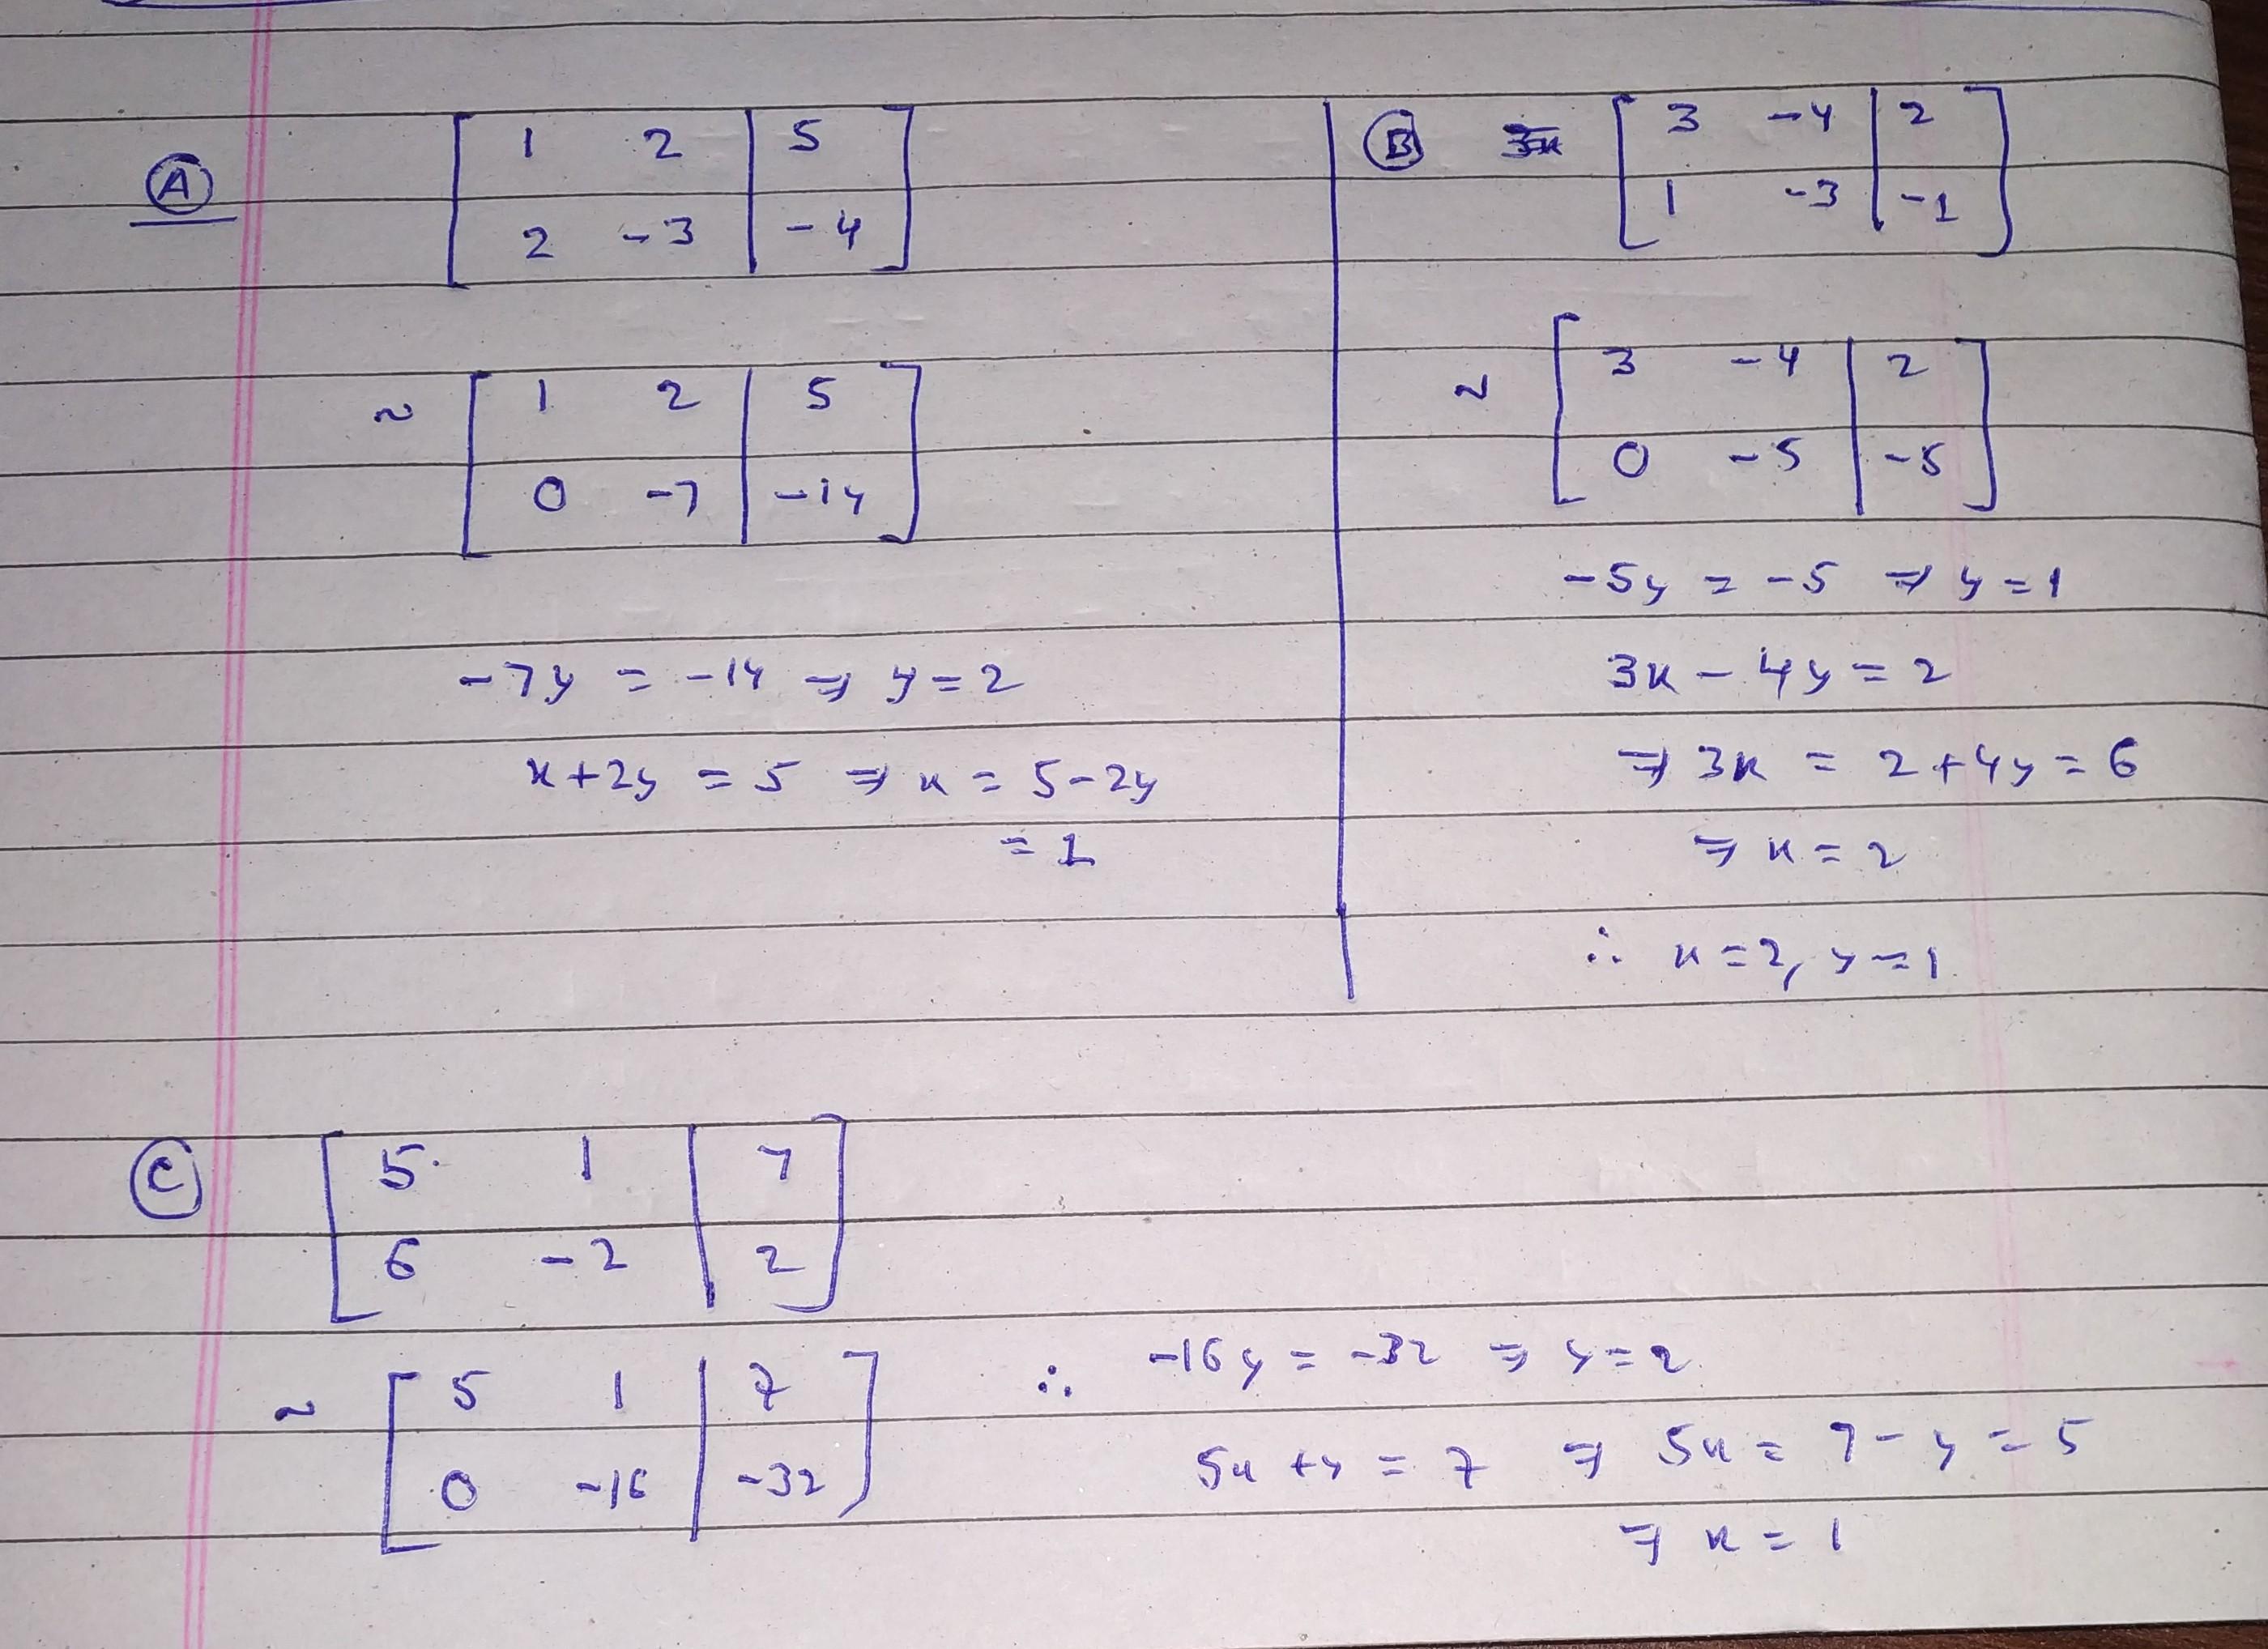 A
[ 1 2 | 5 ]
[ 2 -3 | -4 ]
~ [ 1 2 | 5 ]
[ 0 -7 | -14 ]
-7y = -14 ⇒ y = 2
x + 2y = 5 ⇒ x = 5 - 2y
= 1
B
[ 3 -4 | 2 ]
[ 1 -3 | -1 ]
~ [ 3 -4 | 2 ]
[ 0 -5 | -5 ]
-5y = -5 ⇒ y = 1
3x - 4y = 2
⇒ 3x = 2 + 4y = 6
⇒ x = 2
∴ x = 2, y = 1
C
[ 5 1 | 7 ]
[ 6 -2 | 2 ]
~ [ 5 1 | 7 ]
[ 0 -16 | -32 ]
∴ -16y = -32 ⇒ y = 2
5x + y = 7 ⇒ 5x = 7 - y = 5
⇒ x = 1